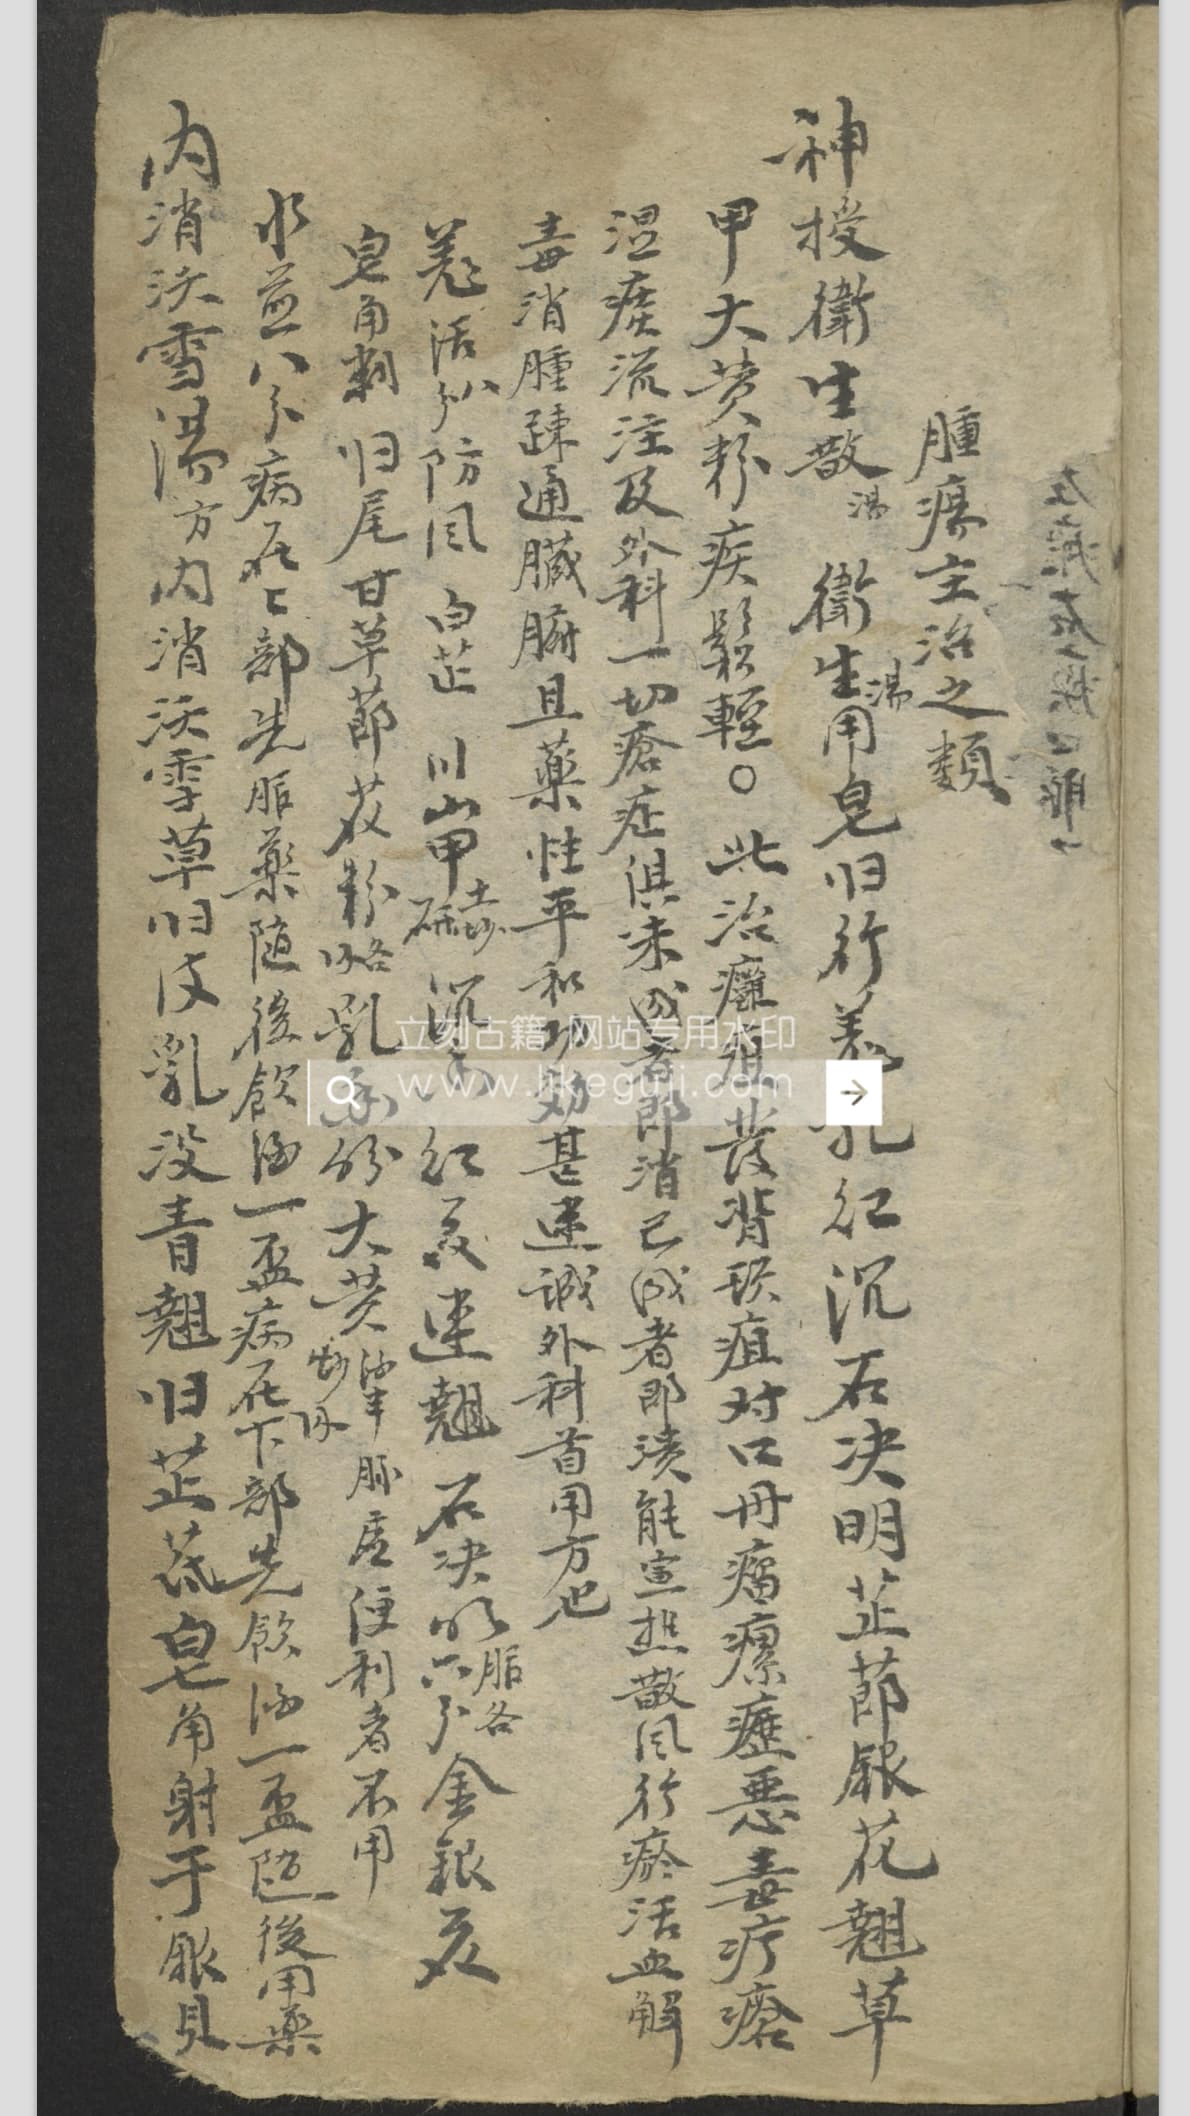 腫瘍主治之類
神授衛生散湯 衛生湯用皂归行羌乳红沉石决明芷節銀花翹草
甲大黄粉疾鬆輕〇此治癰疽發背 疽対口丹瘤瘰癧惡毒疔瘡
湿痰流注及外科一切瘡症俱未成者即消已成者即潰能宣熱散风行瘀活血解
毒消腫疎通臓腑且藥性平和功効甚速誠外科首用方也
羌活 防风 白芷 川山甲土炒研 沉 红花連翹 石决明 六分 金銀花
皂角刺 归尾甘草節花粉 乳香 大黄 脈虚便利者不用
水煎八分病在上部先服藥随後飲酒一盃病在下部先飲酒一盃随後用藥
内消沃雪湯方内消沃雪草归 乳没青翹归芷 皂角射干 貝
立刻古籍 网站专用水印
www.likeguji.com